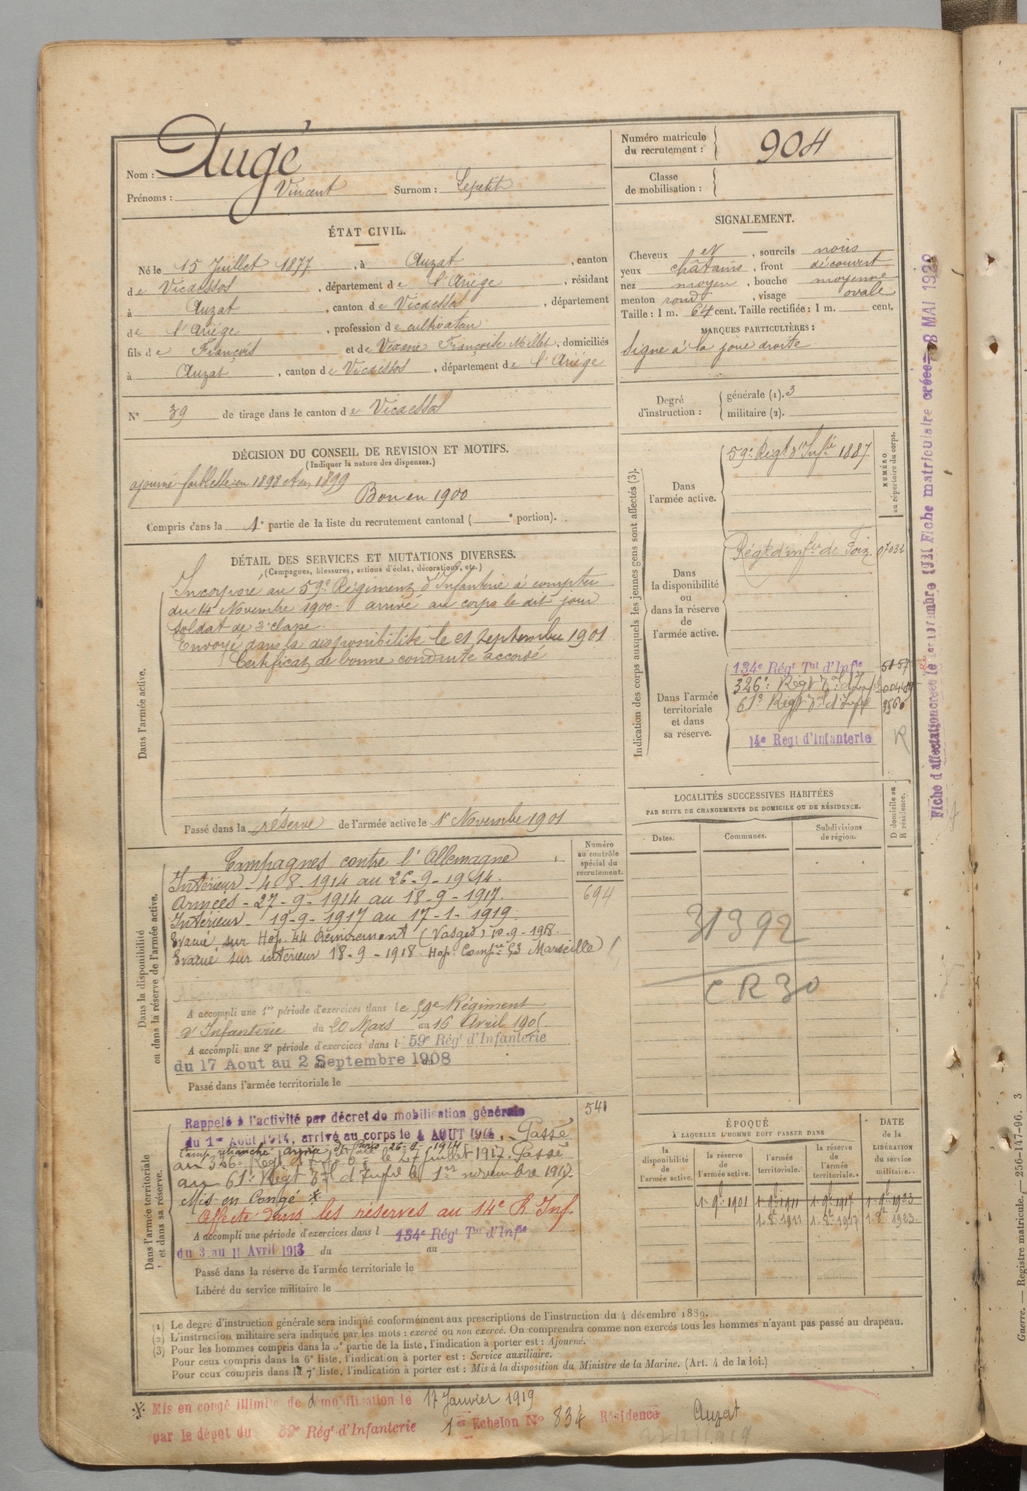 Nom : Augé
Prénoms : Vincent Surnom : Lepetit
Numéro matricule du recrutement : 904
Classe de mobilisation :
ÉTAT CIVIL.
Né le 15 Juillet 1877, à Auzat, canton
de Vicdessos, département de l'Ariège, résidant
à Auzat, canton de Vicdessos, département
de l'Ariège, profession de cultivateur
fils de François et de Françoise Millet, domiciliés
à Auzat, canton de Vicdessos, département de l'Ariège
N° 39 de tirage dans le canton de Vicdessos
SIGNALEMENT.
Cheveux et, sourcils noirs
yeux chatains, front découvert
nez moyen, bouche moyenne
menton rond, visage ovale
Taille : 1 m. 64 cent. Taille rectifiée : 1 m. cent.
MARQUES PARTICULIÈRES :
Signe à la joue droite
Degré d'instruction : générale (1). 3
militaire (2).
DÉCISION DU CONSEIL DE REVISION ET MOTIFS.
(Indiquer la nature des dispenses.)
ajourné faiblesse en 1898 et en 1899
Bon en 1900
Compris dans la 1e partie de la liste du recrutement cantonal ( e portion).
DÉTAIL DES SERVICES ET MUTATIONS DIVERSES.
(Campagnes, blessures, actions d'éclat, décorations, etc.)
Dans l'armée active.
Incorporé au 59e Régiment d'Infanterie à compter
du 14 Novembre 1900. arrivé au corps le dit jour
soldat de 2e classe.
Envoyé dans la disponibilité le 21 Septembre 1901
Certificat de bonne conduite accordé
Passé dans la réserve de l'armée active le 1er Novembre 1901
Indication des corps auxquels les jeunes gens sont affectés (3).
NUMÉRO au répertoire du corps.
Dans l'armée active.
59e Régt d'Infie 1887
Dans la disponibilité ou dans la réserve de l'armée active.
Régt d'infie de Foix 07032
Dans l'armée territoriale et dans sa réserve.
134e Régt Tal d'Infie
326e Régt
61e Régt
14e Régt d'Infanterie R
LOCALITÉS SUCCESSIVES HABITÉES
PAR SUITE DE CHANGEMENTS DE DOMICILE OU DE RÉSIDENCE.
Dates. Communes. Subdivisions de région. D domicile ou R résidence.
31392
CR 30
Dans la disponibilité ou dans la réserve de l'armée active.
Numéro au contrôle spécial du recrutement.
694
Campagnes contre l'Allemagne
Intérieur - 4-8-1914 au 26-9-1914.
Armées - 27-9-1914 au 18-9-1917.
Intérieur 19-9-1917 au 17-1-1919.
Evacué sur Hop. 44 Remiremont (Vosges) 10-9-1918.
Evacué sur intérieur 18-9-1918 Hop. Compre 53 Marseille
A accompli une 1re période d'exercices dans le 59e Régiment
d'Infanterie du 20 Mars au 16 Avril 190
A accompli une 2e période d'exercices dans l 59e Régt d'Infanterie
du 17 Aout au 2 Septembre 1908
Passé dans l'armée territoriale le
Dans l'armée territoriale et dans sa réserve.
541
Rappelé à l'activité par décret de mobilisation générale
du 1er Août 1914, arrivé au corps le 4 AOUT 1914. Passé
au 326e Régt le 27 juillet 1917. Passé
au 61e Régt Tal d'Infie le 1er novembre 1917.
Mis en Congé *
Affecté dans les réserves au 14e R. Inf.
A accompli une période d'exercices dans l 134e Régt Tal d'Infie
du 3 au 11 Avril 1913 du au
Passé dans la réserve de l'armée territoriale le
Libéré du service militaire le
ÉPOQUE
À LAQUELLE L'HOMME DOIT PASSER DANS
la disponibilité de l'armée active. la réserve de l'armée active. l'armée territoriale. la réserve de l'armée territoriale. DATE de la LIBÉRATION du service militaire.
(1) Le degré d'instruction générale sera indiqué conformément aux prescriptions de l'instruction du 4 décembre 1889.
(2) L'instruction militaire sera indiquée par les mots : exercé ou non exercé. On comprendra comme non exercés tous les hommes n'ayant pas passé au drapeau.
(3) Pour les hommes compris dans la 5e partie de la liste, l'indication à porter est : Ajourné.
Pour ceux compris dans la 6e liste, l'indication à porter est : Service auxiliaire.
Pour ceux compris dans la 7e liste, l'indication à porter est : Mis à la disposition du Ministre de la Marine. (Art. 4 de la loi.)
* Mis en congé illimité de démobilisation le 17 Janvier 1919
par le dépôt du 59e Régt d'Infanterie 1er Echelon N° 834 Résidence Auzat
Guerre. — Registre matricule. — 256-147-96. 3